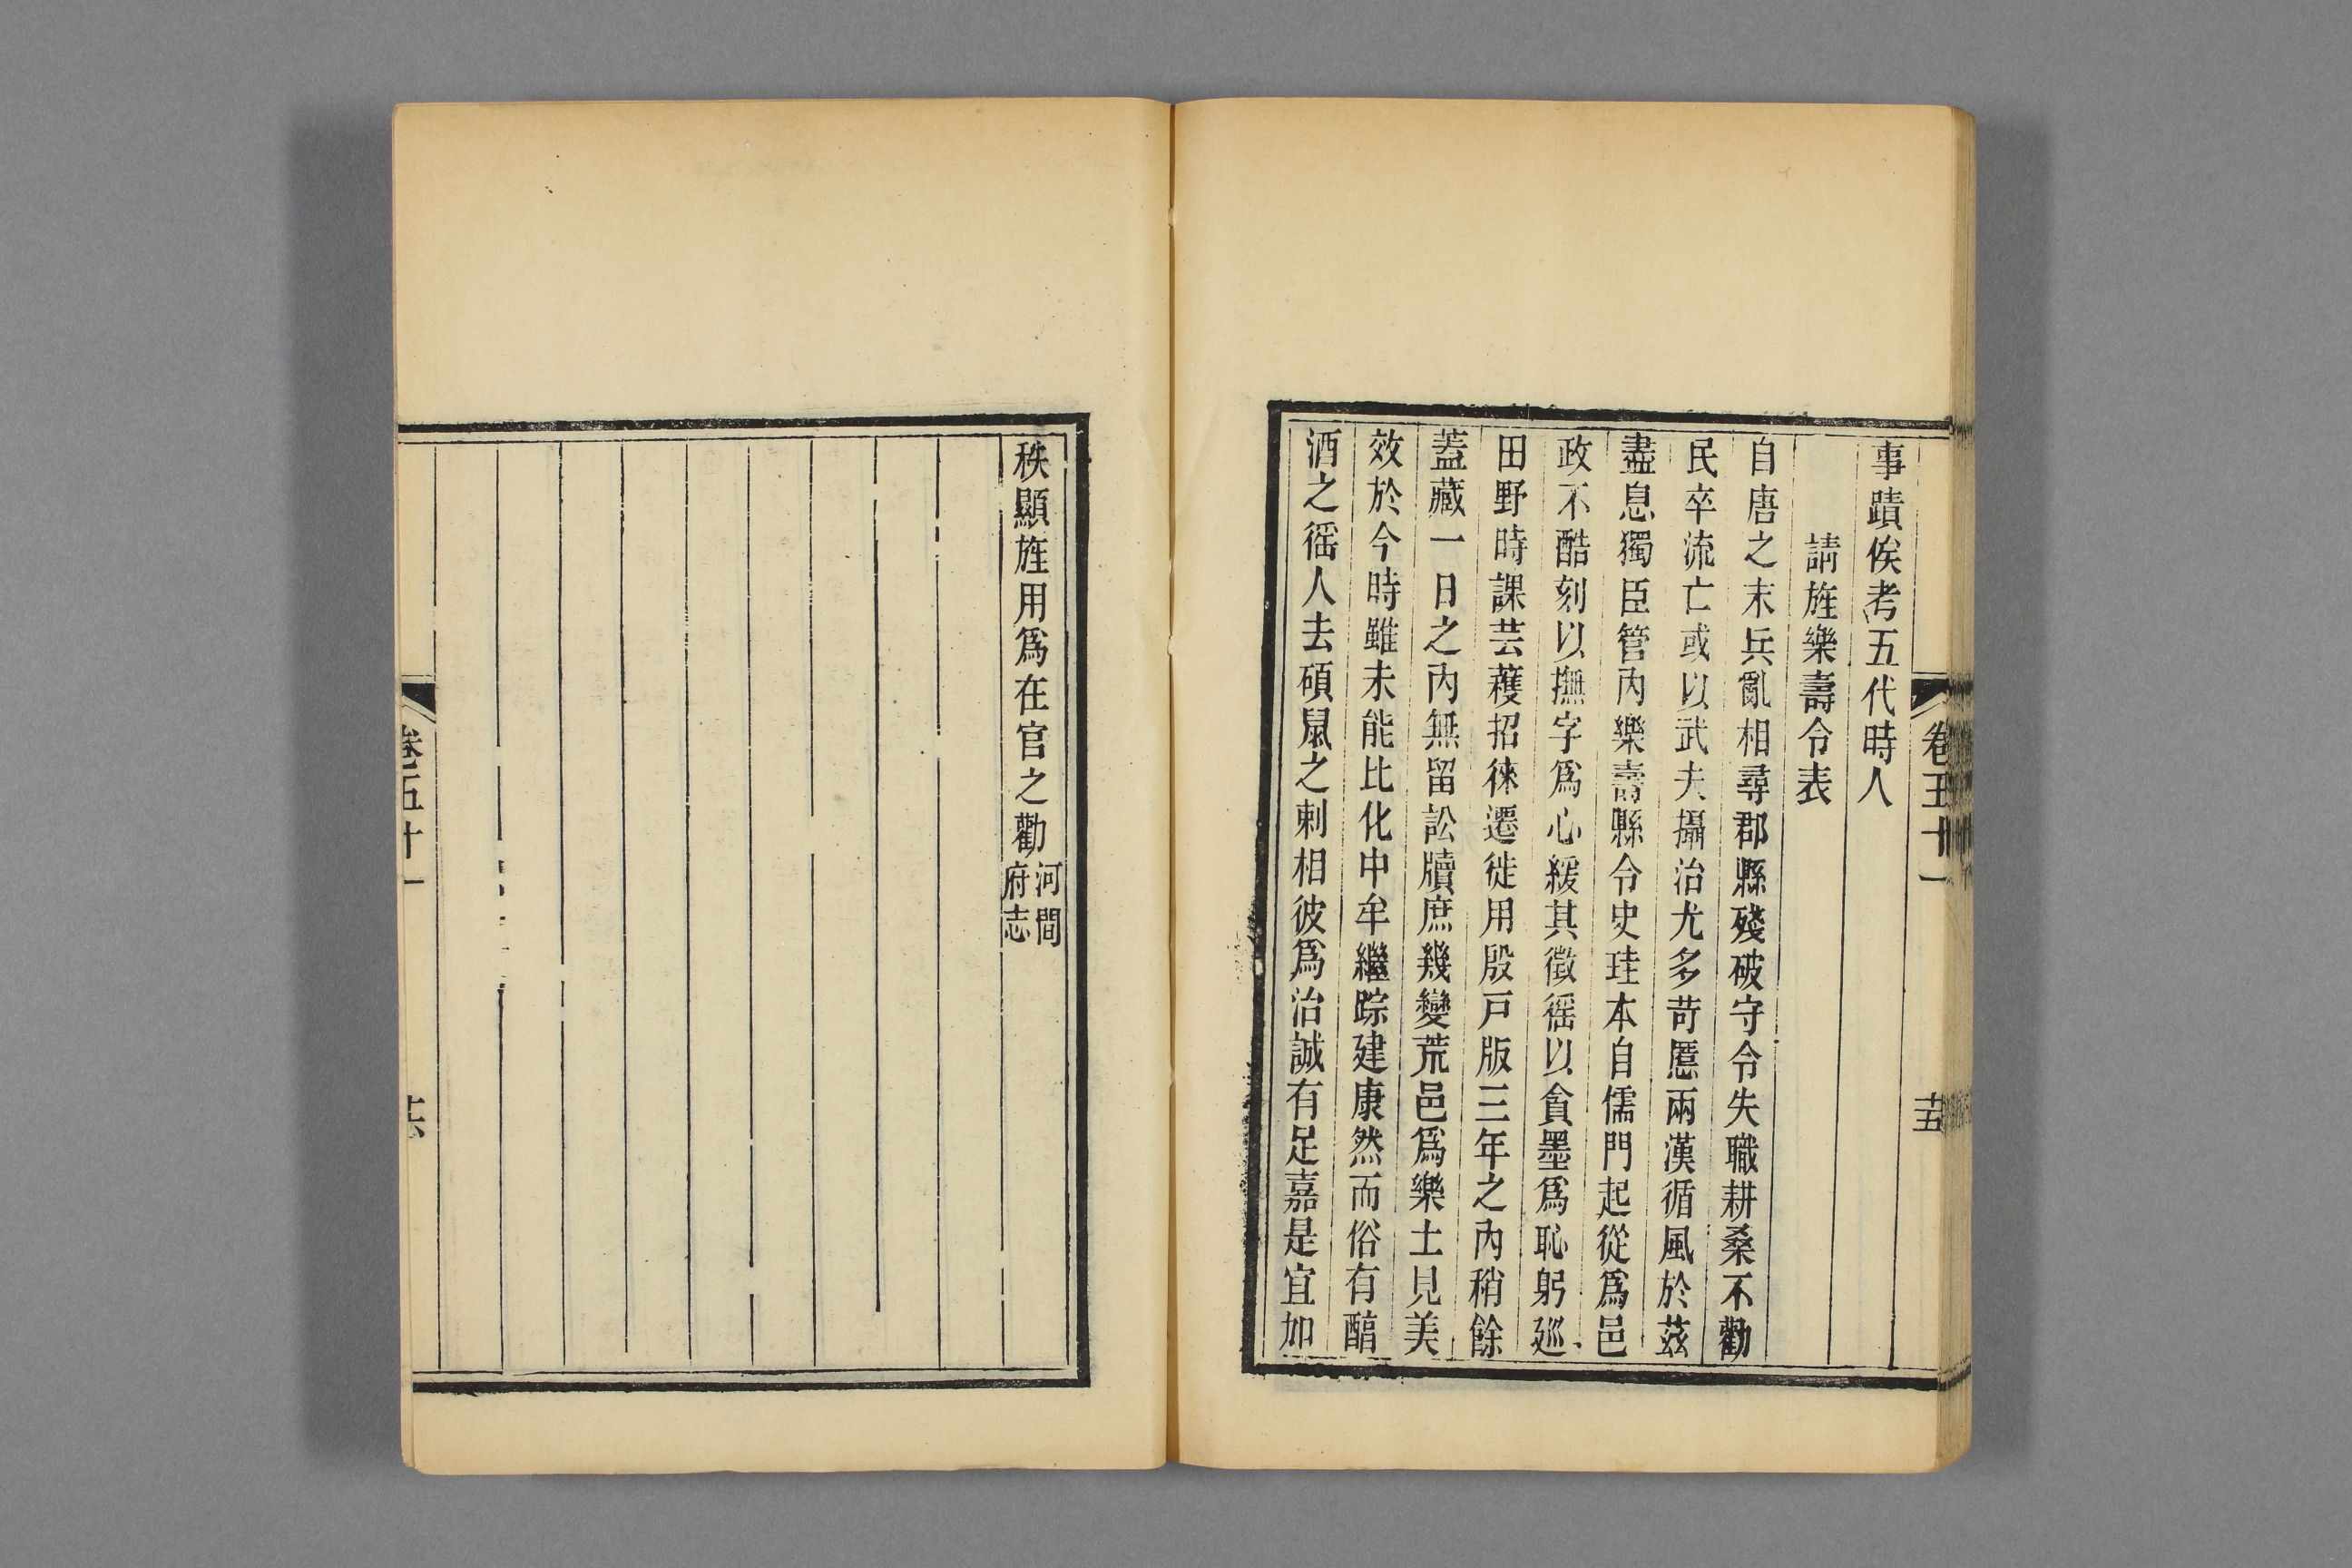 卷五十一
十五
事蹟俟考五代時人
請旌樂壽令表
自唐之末兵亂相尋郡縣殘破守令失職耕桑不勸
民卒流亡或以武夫攝治尤多苛慝兩漢循風於茲
盡息獨臣管內樂壽縣令史珪本自儒門起從爲邑
政不酷刻以撫字爲心緩其徵徭以貪墨爲恥躬廵
田野時課芸穫招徠遷徙用殷戸版三年之內稍餘
蓋藏一日之內無留訟牘庶幾變荒邑爲樂土見美
效於今時雖未能比化中牟繼踪建康然而俗有醕
酒之徭人去碩鼠之刺相彼爲治誠有足嘉是宜加
秩顯旌用爲在官之勸河間
府志
卷五十一
十六